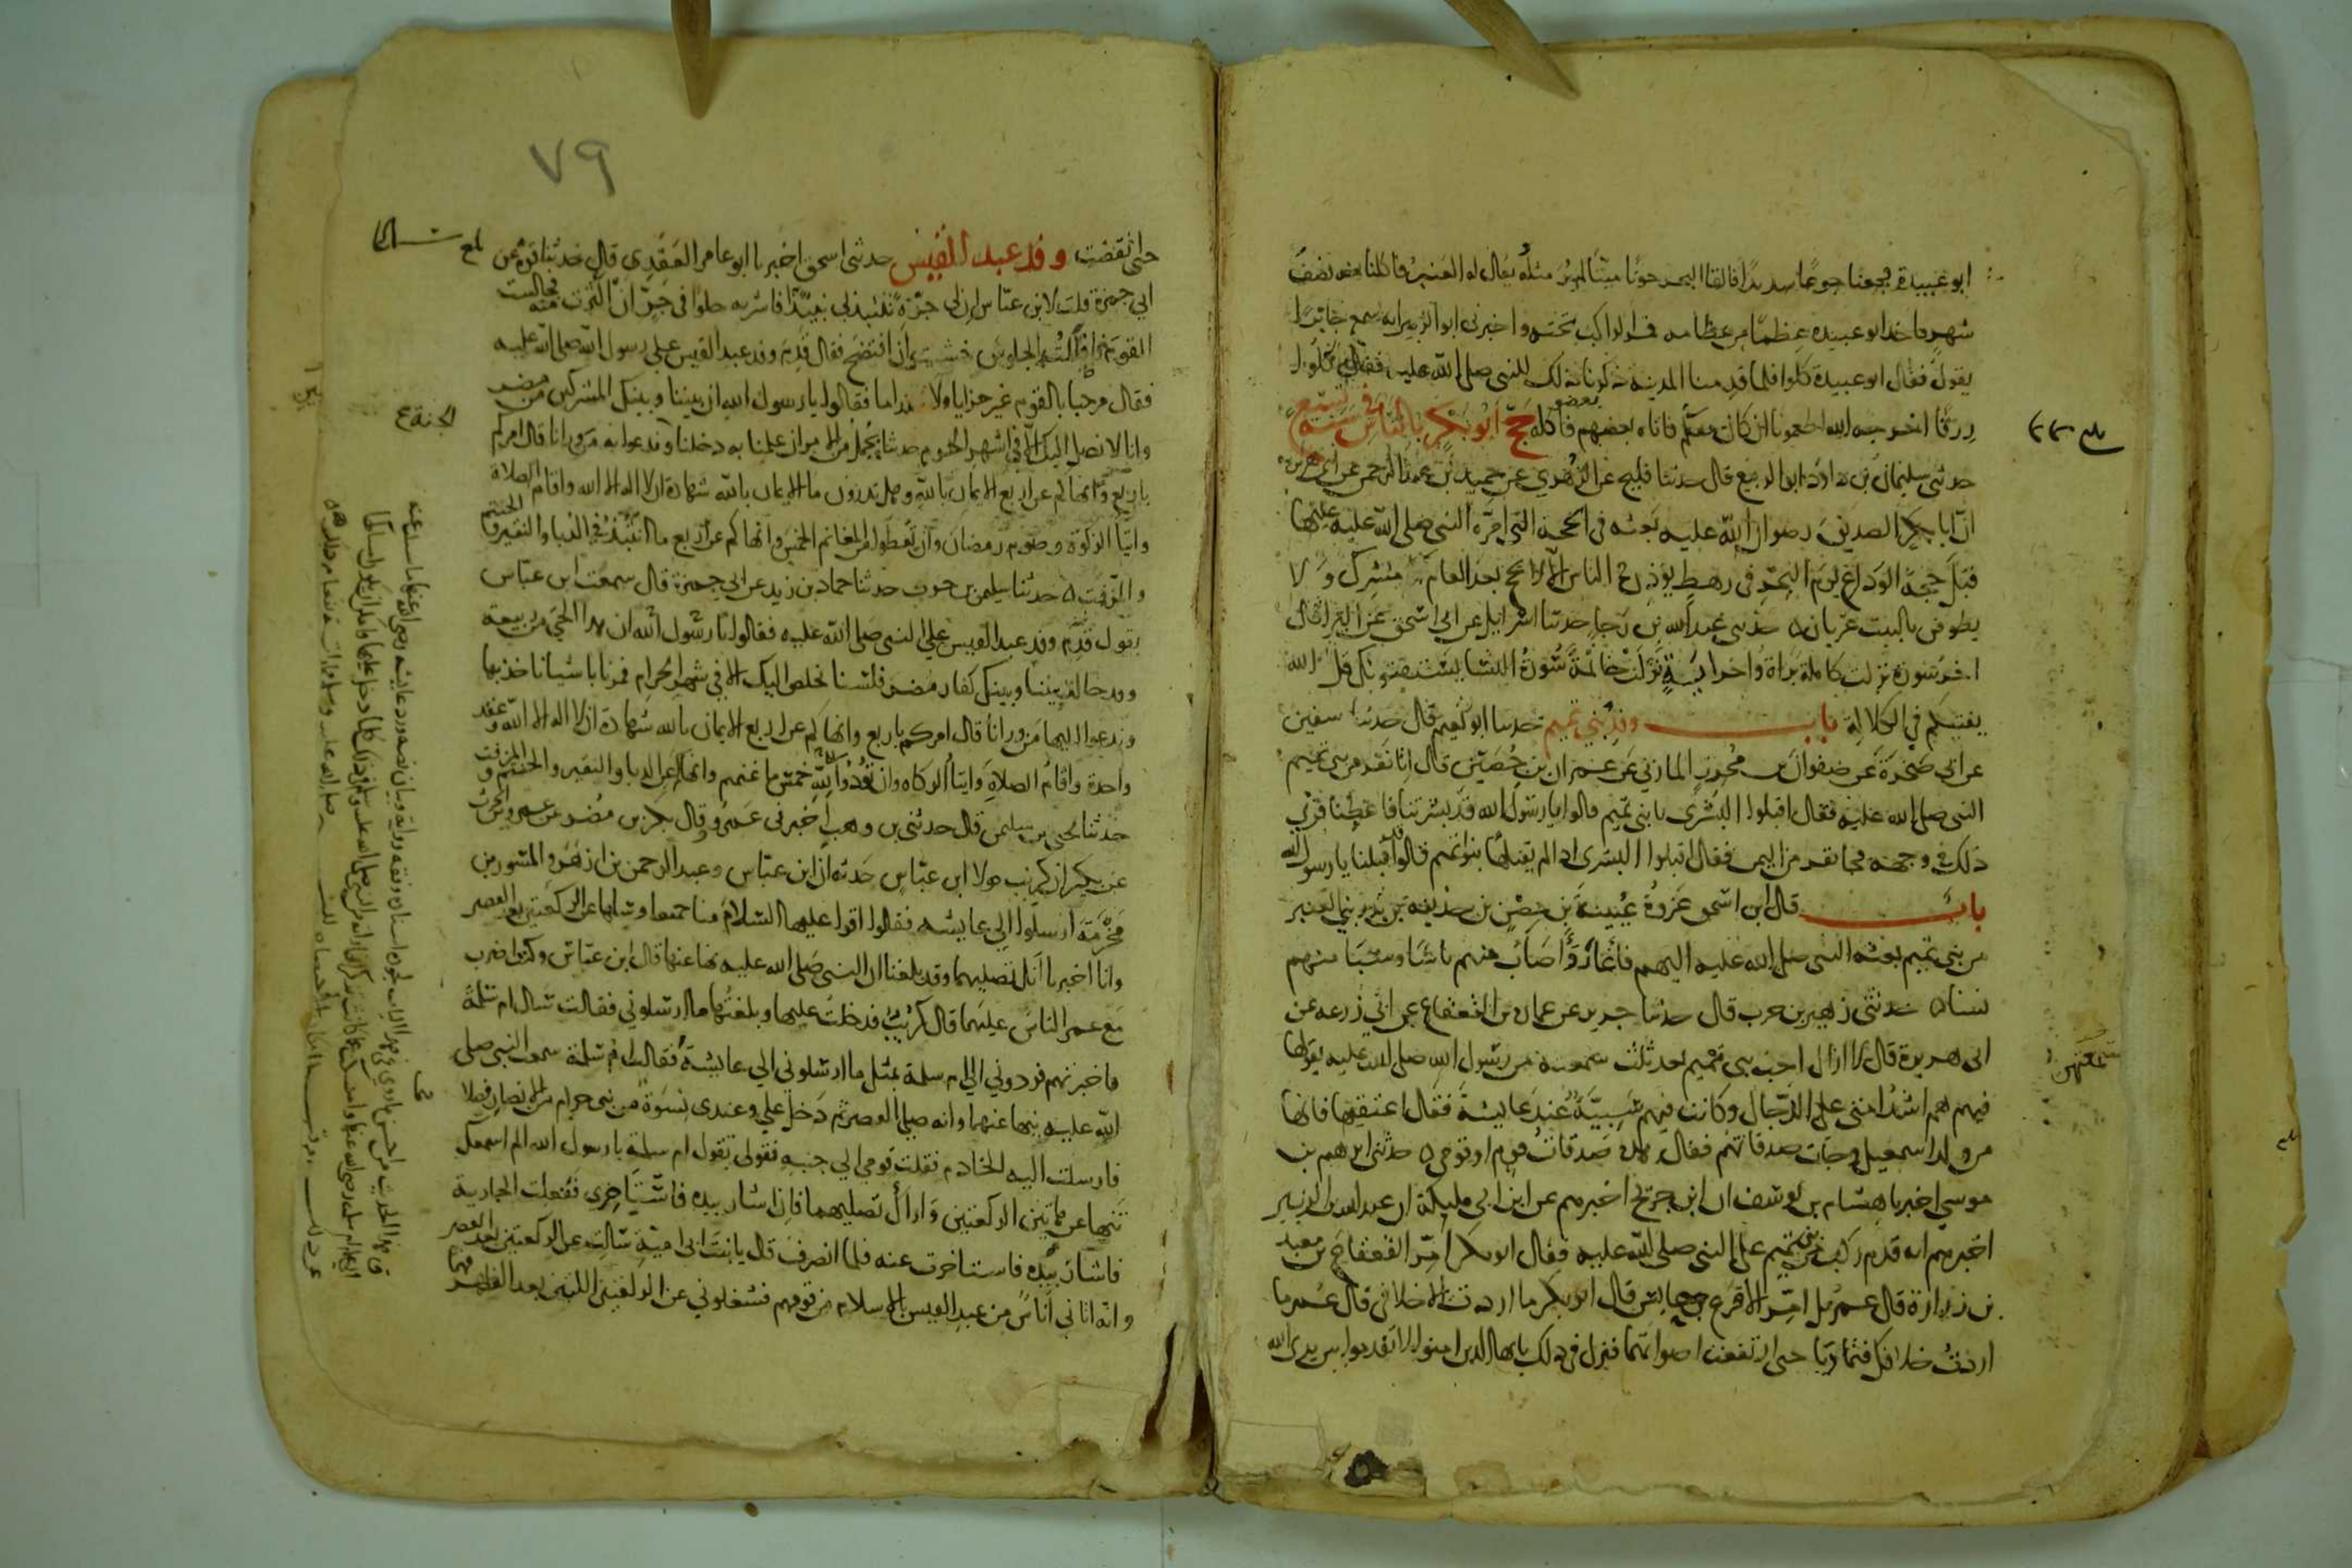 ابو عبيدة فجعنا جوعا شديدا فالقا البحر حوتا ميتا لم ير مثله يقال له العنبر فاكلنا منه نصف
شهر فاخد ابو عبيده عظما من عظامه فمر الراكب تحته واخبرنى ابو الزبير انه سمع جابرا
يقول فقال ابو عبيدة كلوا فلما قدمنا المدينة ذكرنا ذلك للنبى صلى الله عليه فقال كلوا
رزقا اخرجه الله اطعمونا ان كان معكم فاتاه بعضهم فاكله حج ابو بكر بالناس فى سنة تسع
حدثنى سليمان بن داود ابو الربيع قال حدثنا فليح عن الزهري عن حميد بن عبد الرحمن عن ابى هريرة
ان ابا بكر الصديق رضوان الله عليه بعثه فى الحجة التى امره النبى صلى الله عليه عليها
قبل حجة الوداع يوم النحر فى رهط يوذن فى الناس الا لا يحج بعد العام مشرك ولا
يطوفن بالبيت عريان ٥ حدثنى عبد الله بن رجا حدثنا اسرايل عن ابى اسحق عن البرا قال
اخر سورة نزلت كاملة براة واخر اية نزلت خاتمة سورة النسا يستفتونك قل الله
يفتيكم في الكلالة باب وفد بني تميم حدثنا ابو نعيم قال حدثنا سفين
عن ابي صخرة عن صفوان بن محرز المازني عن عمران بن حصين قال اتا نفر من بني تميم
النبى صلى الله عليه فقال اقبلوا البشرى يا بني تميم قالوا يا رسول الله قد بشرتنا فاعطنا فرئي
ذلك في وجهه فجا نفر من اليمن فقال اقبلوا البشرى اذ لم يقبلها بنو تميم قالوا قد قبلنا يا رسول الله
باب قال ابن اسحق غزوة عيينة بن حصن بن حذيفة بن بدر بني العنبر
من بني تميم بعثه النبى صلى الله عليه اليهم فاغار واصاب منهم ناسا وسبا منهم
نسا ٥ حدثني زهير بن حرب قال حدثنا جرير عن عمارة بن القعقاع عن ابي زرعه عن
ابى هريرة قال لا ازال احب بنى تميم بعد ثلث سمعته من رسول الله صلى الله عليه يقولها
فيهم هم اشد امتى على الدجال وكانت فيهم سبية عند عايشة فقال اعتقيها فانها
من ولد اسمعيل وجات صدقاتهم فقال هذه صدقات قوم او قومى ٥ حدثنى ابرهيم بن
موسى اخبرنا هشام بن يوسف ان ابن جريج اخبرهم عن ابن ابى مليكة ان عبد الله بن الزبير
اخبرهم انه قدم ركب من تميم على النبى صلى الله عليه فقال ابو بكر امر القعقاع بن معبد
بن زرارة قال عمر بل امر الاقرع بن حابس قال ابو بكر ما اردت الا خلافى قال عمر ما
اردت خلافك فتماريا حتى ارتفعت اصواتهما فنزل فى ذلك يايها الذين امنوا لا تقدموا بين يدى الله
٧٩
حتى انقضت وفد عبد القيس حدثنى اسحق اخبرنا ابو عامر العقدى قال حدثنا قرة عن
ابي جمرة قلت لابن عباس ان لى جرة تنتبذ لي نبيذا فاشربه حلوا فى جر ان اكثرت منه فجالست
القوم فاطلت الجلوس خشيت ان افتضح فقال قدم وفد عبد القيس على رسول الله صلى الله عليه
فقال مرحبا بالقوم غير خزايا ولا نداما فقالوا يا رسول الله ان بيننا وبينك المشركين من مضر
وانا لا نصل اليك الا في اشهر الحرم حدثنا بجمل من الامر ان عملنا به دخلنا الجنة وندعوا به من ورانا قال امركم
باربع وانهاكم عن اربع الايمان بالله وهل تدرون ما الايمان بالله شهادة ان لا اله الا الله واقام الصلاة
وايتا الزكوة وصوم رمضان وان تعطوا من المغانم الخمس وانهاكم عن اربع ما انتبذ في الدبا والنقير والحنتم
والمزفت ٥ حدثنا سليمن بن حرب حدثنا حماد بن زيد عن ابي جمرة قال سمعت ابن عباس
يقول قدم وفد عبد القيس على النبى صلى الله عليه فقالوا يا رسول الله ان هذا الحي من ربيعة
وقد حالت بيننا وبينك كفار مضر فلسنا نخلص اليك الا في شهر الحرام فمرنا باشيا ناخذ بها
وندعوا اليها من ورانا قال امركم باربع وانهاكم عن اربع الايمان بالله شهادة ان لا اله الا الله وعقد
واحدة واقام الصلاة وايتا الزكاه وان تودوا لله خمس ما غنمتم وانهاكم عن الدبا والنقير والحنتم والمزفت
حدثنا يحيى بن سليمن قال حدثنى بن وهب اخبرنى عمرو وقال بكر بن مضر عن عمرو بن الحرث
عن بكير ان كريب مولا ابن عباس حدثه ان ابن عباس وعبد الرحمن بن ازهر والمسور بن
مخرمة ارسلوا الى عايشه فقالوا اقرا عليها السلام منا جميعا وسلها عن الركعتين بعد العصر
وانا اخبرنا انك تصليهما وقد بلغنا ان النبى صلى الله عليه نها عنها قال ابن عباس وكنت اضرب
مع عمر الناس عليهما قال كريب فدخلت عليها وبلغتها ما ارسلوني فقالت سل ام سلمة
فاخبرتهم فردوني الى ام سلمة بمثل ما ارسلوني الى عايشة فقالت ام سلمة سمعت النبي صلى
الله عليه ينها عنهما وانه صلى العصر ثم دخل علي وعندى نسوة من بنى حرام من الانصار فصلا
فارسلت اليه الخادم فقلت قومى الي جنبه فقولى تقول ام سلمة يا رسول الله الم اسمعك
تنها عن هاتين الركعتين واراك تصليهما فان اشار بيده فاستاخرى ففعلت الجارية
فاشار بيده فاستاخرت عنه فلما انصرف قال يا بنت ابى امية سالت عن الركعتين بعد العصر
وانه اتانى اناس من عبد القيس بالاسلام من قومهم فشغلوني عن الركعتين اللتين بعد الظهر فهما